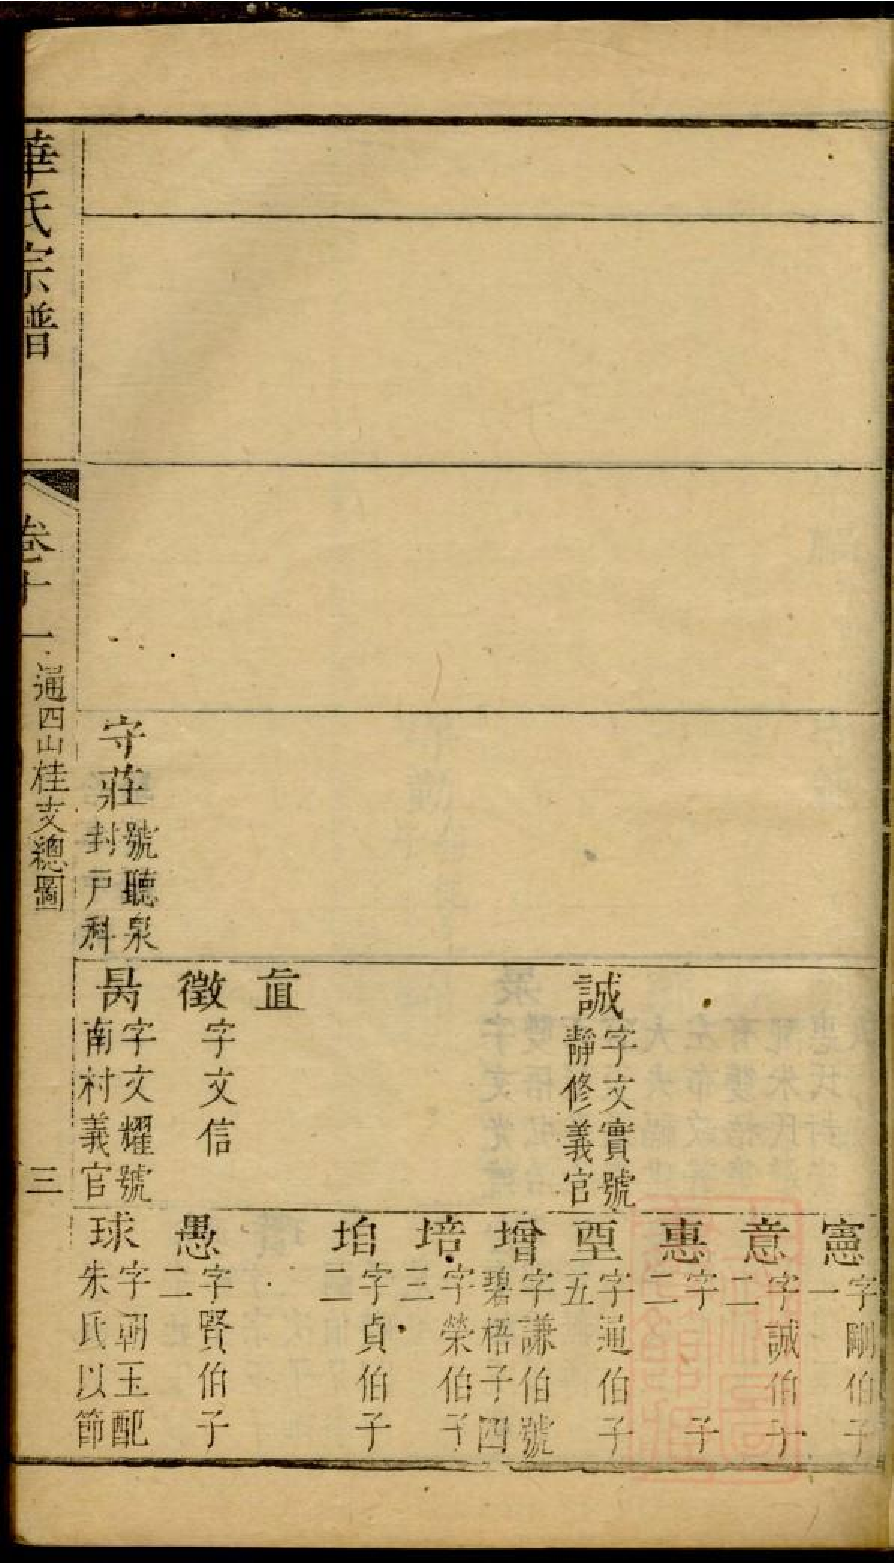 華氏宗譜
卷十一
通四山桂支總圖
三
守莊
號聽泉
封戶科
誠
字文實號
靜修義官
徵
字文信
昺
字文耀號
南村義官
憲
字剛伯子
一
意
字誠伯子
二
惠
字 子
二
堊
字通伯子
五
增
字謙伯號
碧梧子四
培
字榮伯子
三
字貞伯子
二
愚
字賢伯子
二
球
字朝玉配
朱氏以節